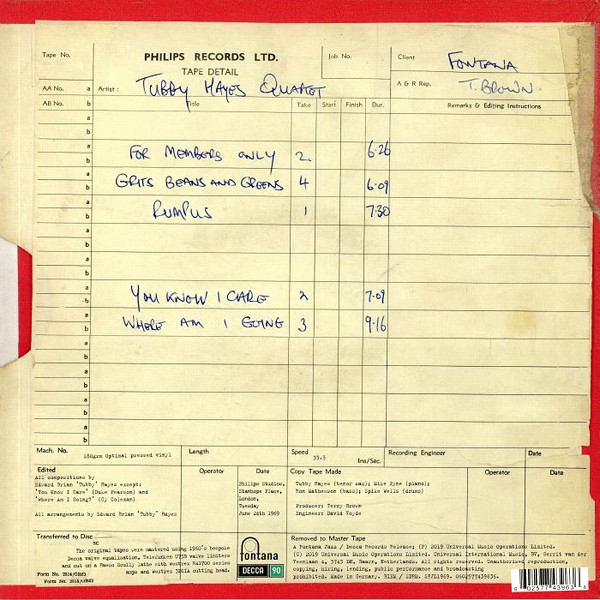 Tape No.
PHILIPS RECORDS LTD.
Job No.
Client
FONTANA
TAPE DETAIL
AA No. a
Artist: TUBBY HAYES QUARTET
A & R Rep. T. BROWN.
AB No. b
Title Take Start Finish Dur.
Remarks & Editing Instructions
a
b
a
FOR MEMBERS ONLY 2. 6.26
b
a
GRITS BEANS AND GREENS 4 6.09
b
a
RUMPUS 1 7.30
b
a
b
a
b
a
YOU KNOW I CARE 2 7.09
b
a
WHERE AM I GOING 3 9.16
b
a
b
a
b
a
b
a
b
Mach. No. 180grm Optimal pressed vinyl
Length
Speed 33.3 Ins/Sec.
Recording Engineer
Date
Date
Edited
Operator
Date
Copy Tape Made
Operator
Date
All compositions by
Edward Brian 'Tubby' Hayes except:
'You Know I Care' (Duke Pearson) and
'Where Am I Going?' (Cy Coleman)
All arrangements by Edward Brian 'Tubby' Hayes
Philips Studios,
Stanhope Place,
London,
Tuesday
June 24th 1969
Tubby Hayes (tenor sax); Mike Pyne (piano);
Ron Mathewson (bass); Spike Wells (drums)
Producer: Terry Brown
Engineer: David Voyde
Transferred to Disc
SC
The original tapes were mastered using 1960's bespoke
Decca valve equalization, Telefunken U73B valve limiters
and cut on a Neumann Scully lathe with Westrex RA1700 series
amps and Westrex 3DIIA cutting head.
Form No.
fontana
DECCA 90
Removed to Master Tape
A Fontana Jazz / Decca Records Release; (P) 2019 Universal Music Operations Limited.
(C) 2019 Universal Music Operations Limited. Universal International Music, BV, Gerrit van der
Veenlaan 4, 3743 DN, Baarn, Netherlands. All rights reserved. Unauthorised reproduction,
copying, hiring, lending, public performance and broadcasting
prohibited. Made in Germany. BIEM / SDRM. LC/L1969. 060257743963&
6 02577 43963 6